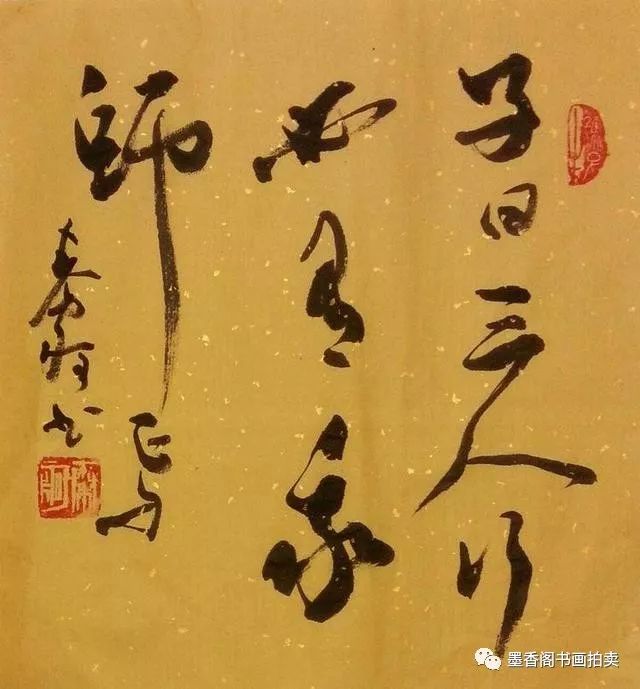 子曰三人行
必有我
師焉
書
墨香阁书画拍卖